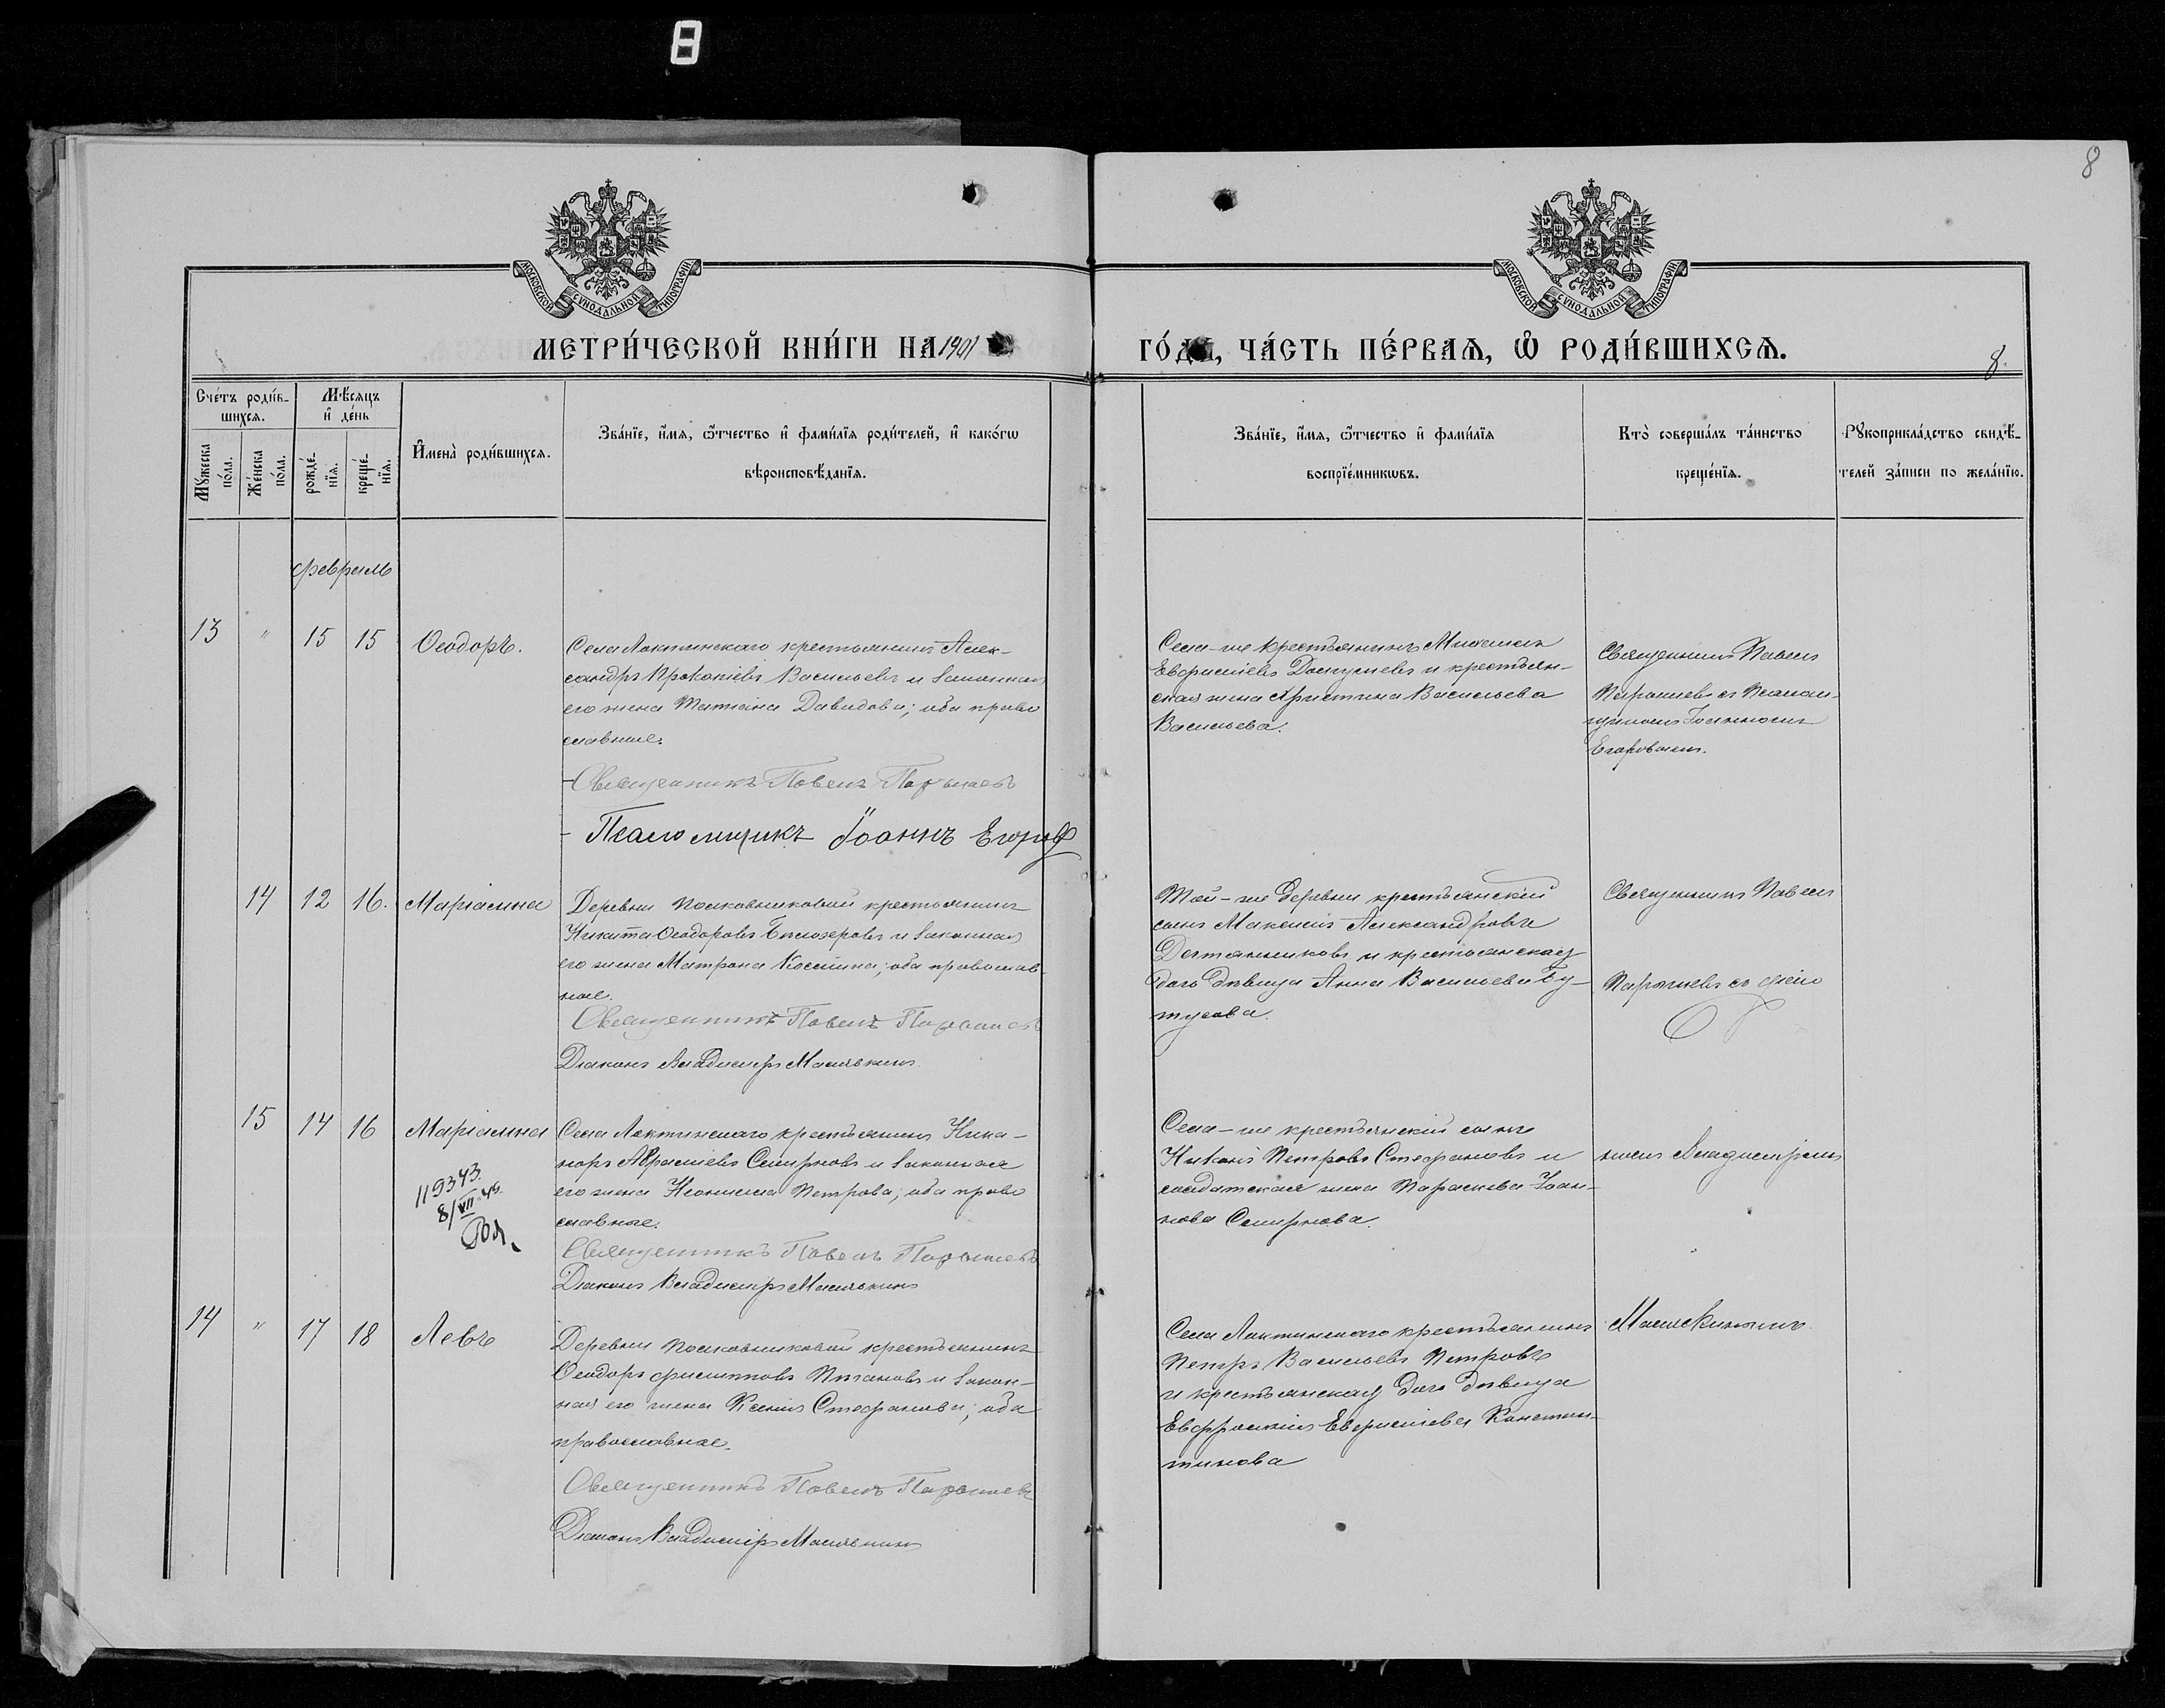 8
8
МОСКОВСКОЙ СѴНОДАЛЬНОЙ ТИПОГРАФІИ
МОСКОВСКОЙ СѴНОДАЛЬНОЙ ТИПОГРАФІИ
МЕТРИ́ЧЕСКОЙ КНИ́ГИ НА 1901
ГО́ДА, ЧА́СТЬ ПЕ́РВАѦ, Ѡ РОДИ́ВШИХСѦ.
8.
Сче́тъ роди́в-
шихсѧ.
Мꙋжеска по́ла.
Же́нска по́ла.
Мѣ́сѧцъ
и҆ де́нь
рожде́-нїѧ.
креще́-нїѧ.
И҆мена̀ роди́вшихсѧ.
Зва́нїе, и҆́мѧ, ѻ҆́тчество и҆ фами́лїѧ роди́телей, и҆ како́гѡ
вѣроисповѣ́данїѧ.
Зва́нїе, и҆́мѧ, ѻ҆́тчество и҆ фами́лїѧ
воспрїе́мникѡвъ.
Кто̀ соверша́лъ та́инство
креще́нїѧ.
Рꙋкоприкла́дство свидѣ́-
телей за́писи по жела́нїю.
Февраль
13 " 15 15 Ѳеодоръ.
Села Локтинскаго крестьянинъ Алек-
сандръ Прокопіевъ Васильевъ и законная
его жена Татіана Давидова; оба право
славные.
Священникъ Павелъ Парышевъ
Псаломщикъ Іоаннъ Егоровъ
Села-же крестьянинъ Михаилъ
Евфиміевъ и крестьян-
ская жена Христина Васильева
Васильева.
Священникъ Павелъ
Парышевъ съ Псалом-
щикомъ Іоанномъ
Егоровымъ.
14 12 16. Маріамна
Деревни Полковниковой крестьянинъ
Никита Ѳеодоровъ Бѣлозеровъ и законная
его жена Матрона Космина; оба православ-
ные.
Священникъ Павелъ Парышевъ
Діаконъ Владиміръ
Той-же деревни крестьянскій
сынъ Александровъ
и крестьянская
дочь дѣвица Анна Васильева Бу-
тусова.
Священникъ Павелъ
Парышевъ съ діако
15 14 16 Маріамна
119343.
8/VII 49
Села Локтинскаго крестьянинъ Ника-
норъ Авраміевъ Смирновъ и законная
его жена Неонилла Петрова; оба право
славные.
Священникъ Павелъ Парышевъ
Діаконъ Владиміръ
Села-же крестьянскій сынъ
Никонъ Петровъ Стефановъ и
солдатская жена Параскева Іоан-
нова Смирнова.
номъ Владиміромъ
14 " 17 18 Левъ
Деревни Полковниковой крестьянинъ
Ѳеодоръ Филипповъ и закон-
ная его жена Ксенія Стефанова; оба
православные.
Священникъ Павелъ Парышевъ
Діаконъ Владиміръ
Села Локтинскаго крестьянинъ
Петръ Васильевъ Петровъ
и крестьянская дочь дѣвица
Евфросинія Евфиміева Констан-
тинова